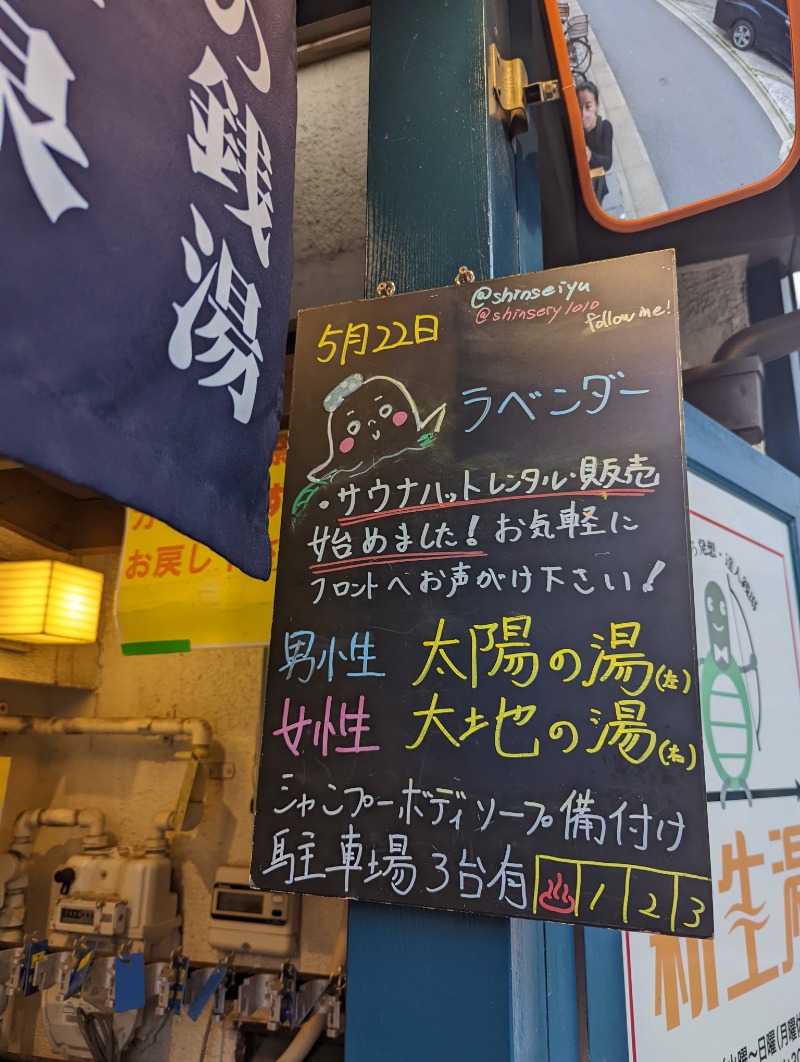 の銭湯
泉
@shinseiyu
@shinsery1010
follow me!
5月22日
ラベンダー
・サウナハットレンタル・販売
始めました！お気軽に
フロントへお声がけ下さい！
男性 太陽の湯(左)
女性 大地の湯(右)
シャンプーボディソープ備付け
駐車場3台有 ♨ 1 2 3
お戻し下
新生湯